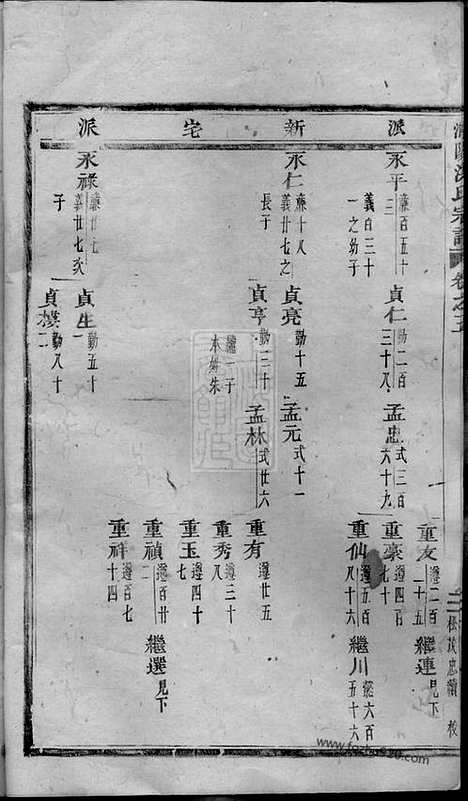 派 新 宅 派
永平 廉百五十三 義百三十一之幼子
貞仁 勤二百三十八
孟忠 式三百六十九
重友 遵二百二十五
繼連 見下
重豪 遵四百七十
重仙 遵五百八十六
繼川 懿六百五十六
永仁 廉十八 義廿七之長子
貞亮 勤十五
孟元 式十一
貞亨 勤三十
孟林 式廿六
重有 遵廿五
重秀 遵三十八
重玉 遵四十七
重禎 遵百廿二
繼選 見下
重祥 遵百七十四
永祿 義廿七次子
貞生 勤五十一
貞樸 勤八十二
氏宗譜
卷之五
www.fgzbs910.com